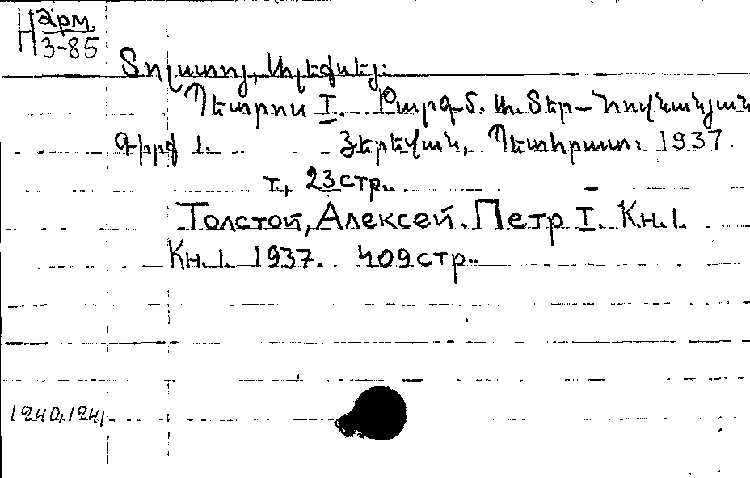 Н арм
3-85
Տոլստոյ, Ալեքսեյ:
Պետրոս I. Թարգմ. Ա. Տեր-Հովնանյան
Գիրք 1. Յերեվան, Պետհրատ: 1937.
т., 23стр..
Толстой, Алексей. Петр I. Кн.1.
Кн.1. 1937. 409стр..